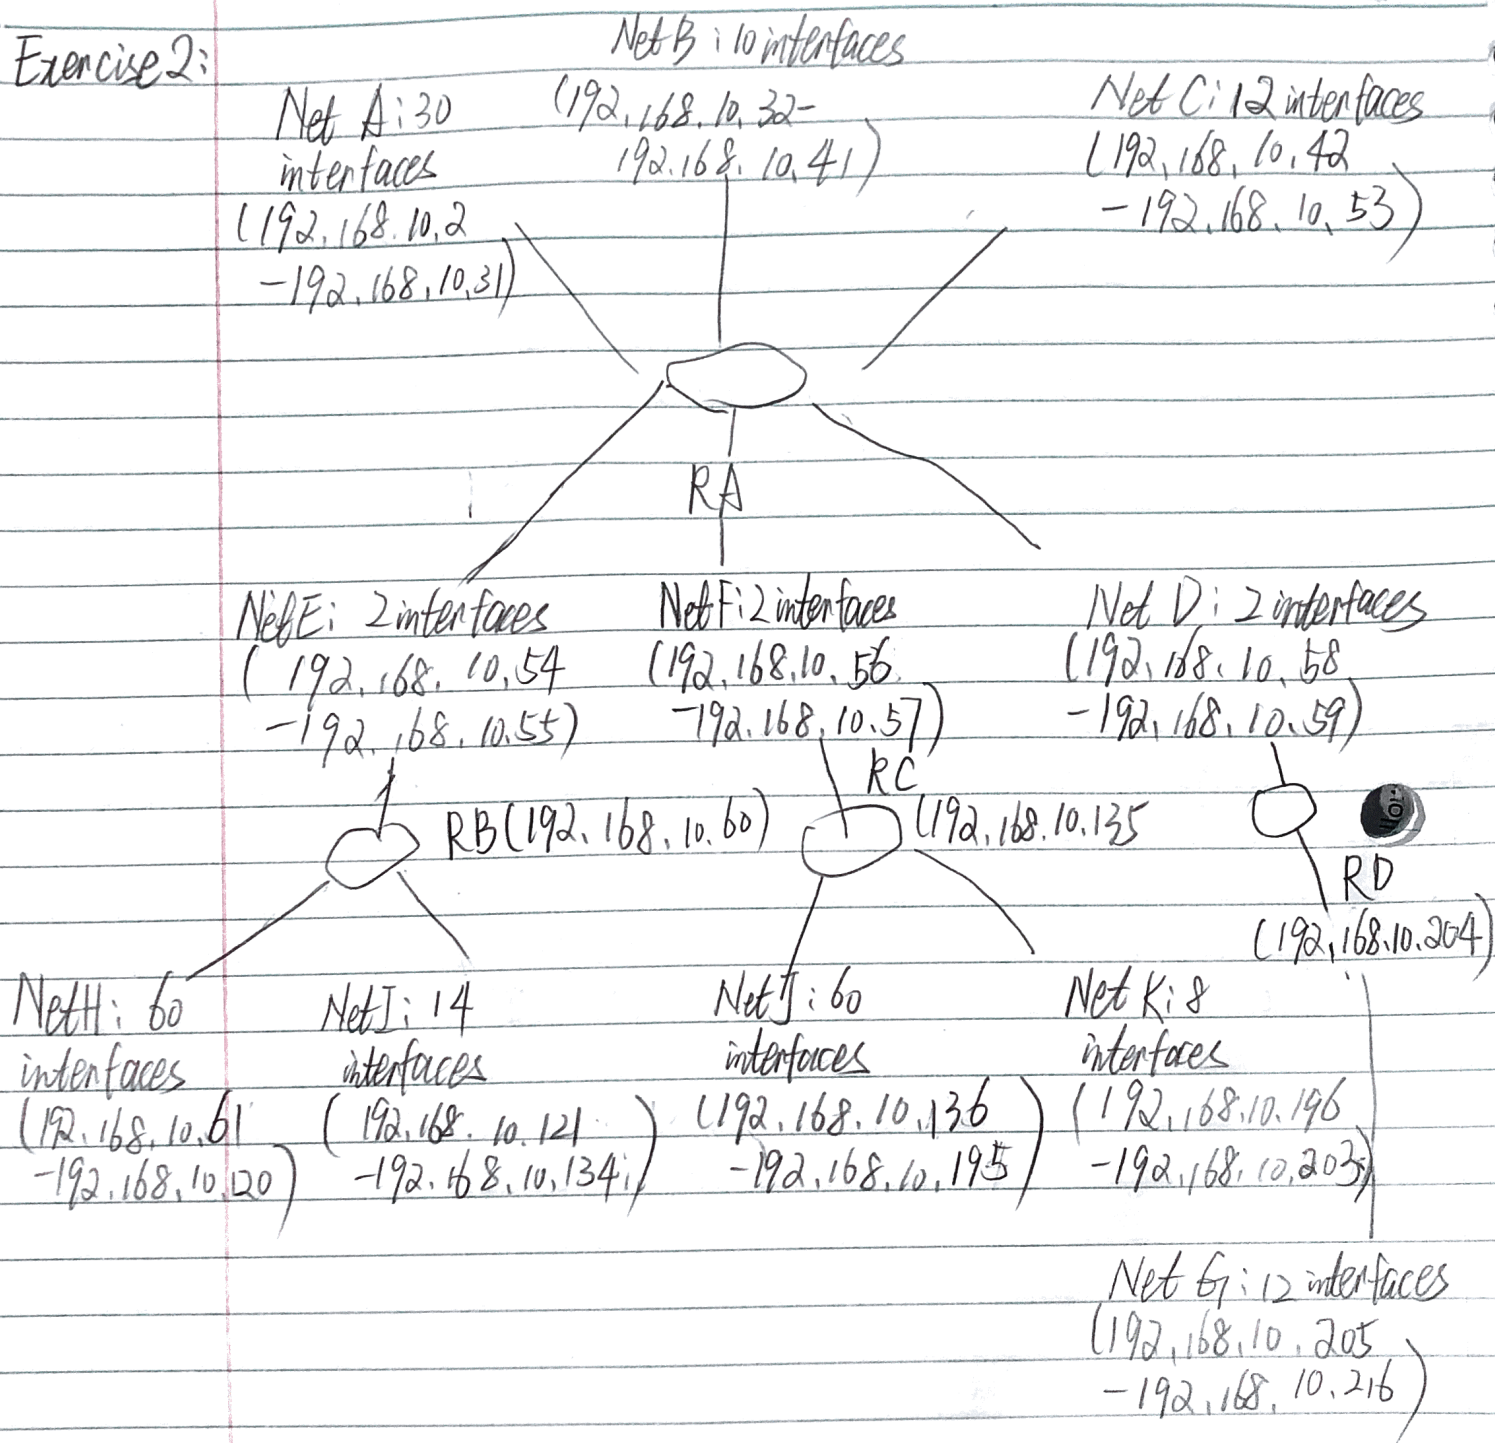 Exercise 2:
Net B : 10 interfaces
(192.168.10.32-
192.168.10.41)
Net A : 30
interfaces
(192.168.10.2
-192.168.10.31)
Net C : 12 interfaces
(192.168.10.42
-192.168.10.53)
RA
Net E : 2 interfaces
(192.168.10.54
-192.168.10.55)
Net F : 2 interfaces
(192.168.10.56
-192.168.10.57)
Net D : 2 interfaces
(192.168.10.58
-192.168.10.59)
RB (192.168.10.60)
RC
(192.168.10.135
RD
(192.168.10.204)
Net H : 60
interfaces
(192.168.10.61
-192.168.10.120)
Net I : 14
interfaces
(192.168.10.121
-192.168.10.134)
Net J : 60
interfaces
(192.168.10.136
-192.168.10.195)
Net K : 8
interfaces
(192.168.10.196
-192.168.10.203)
Net G : 12 interfaces
(192.168.10.205
-192.168.10.216)